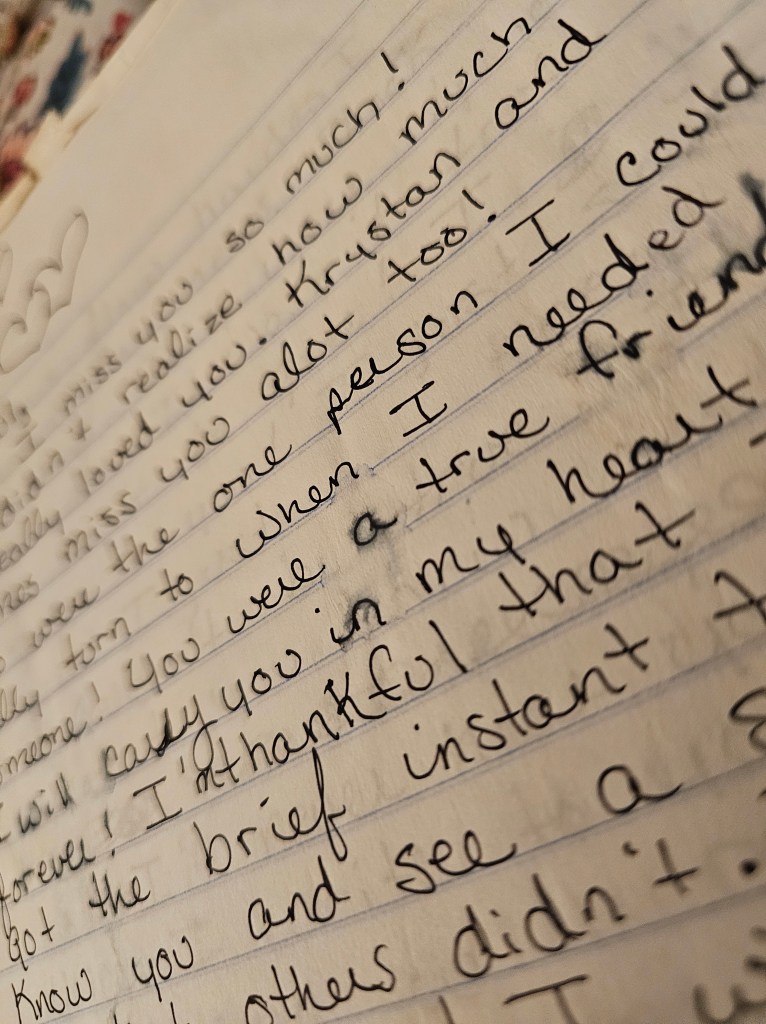 I miss you so much!
didn't realize how much
eally loved you. Krystan and
mes miss you alot too!
were the one person I could
lly turn to when I needed
omeone! You were a true friend
I will carry you in my heart
forever! I'm thankful that
Got the brief instant t
Know you and see a
others didn't.
I w